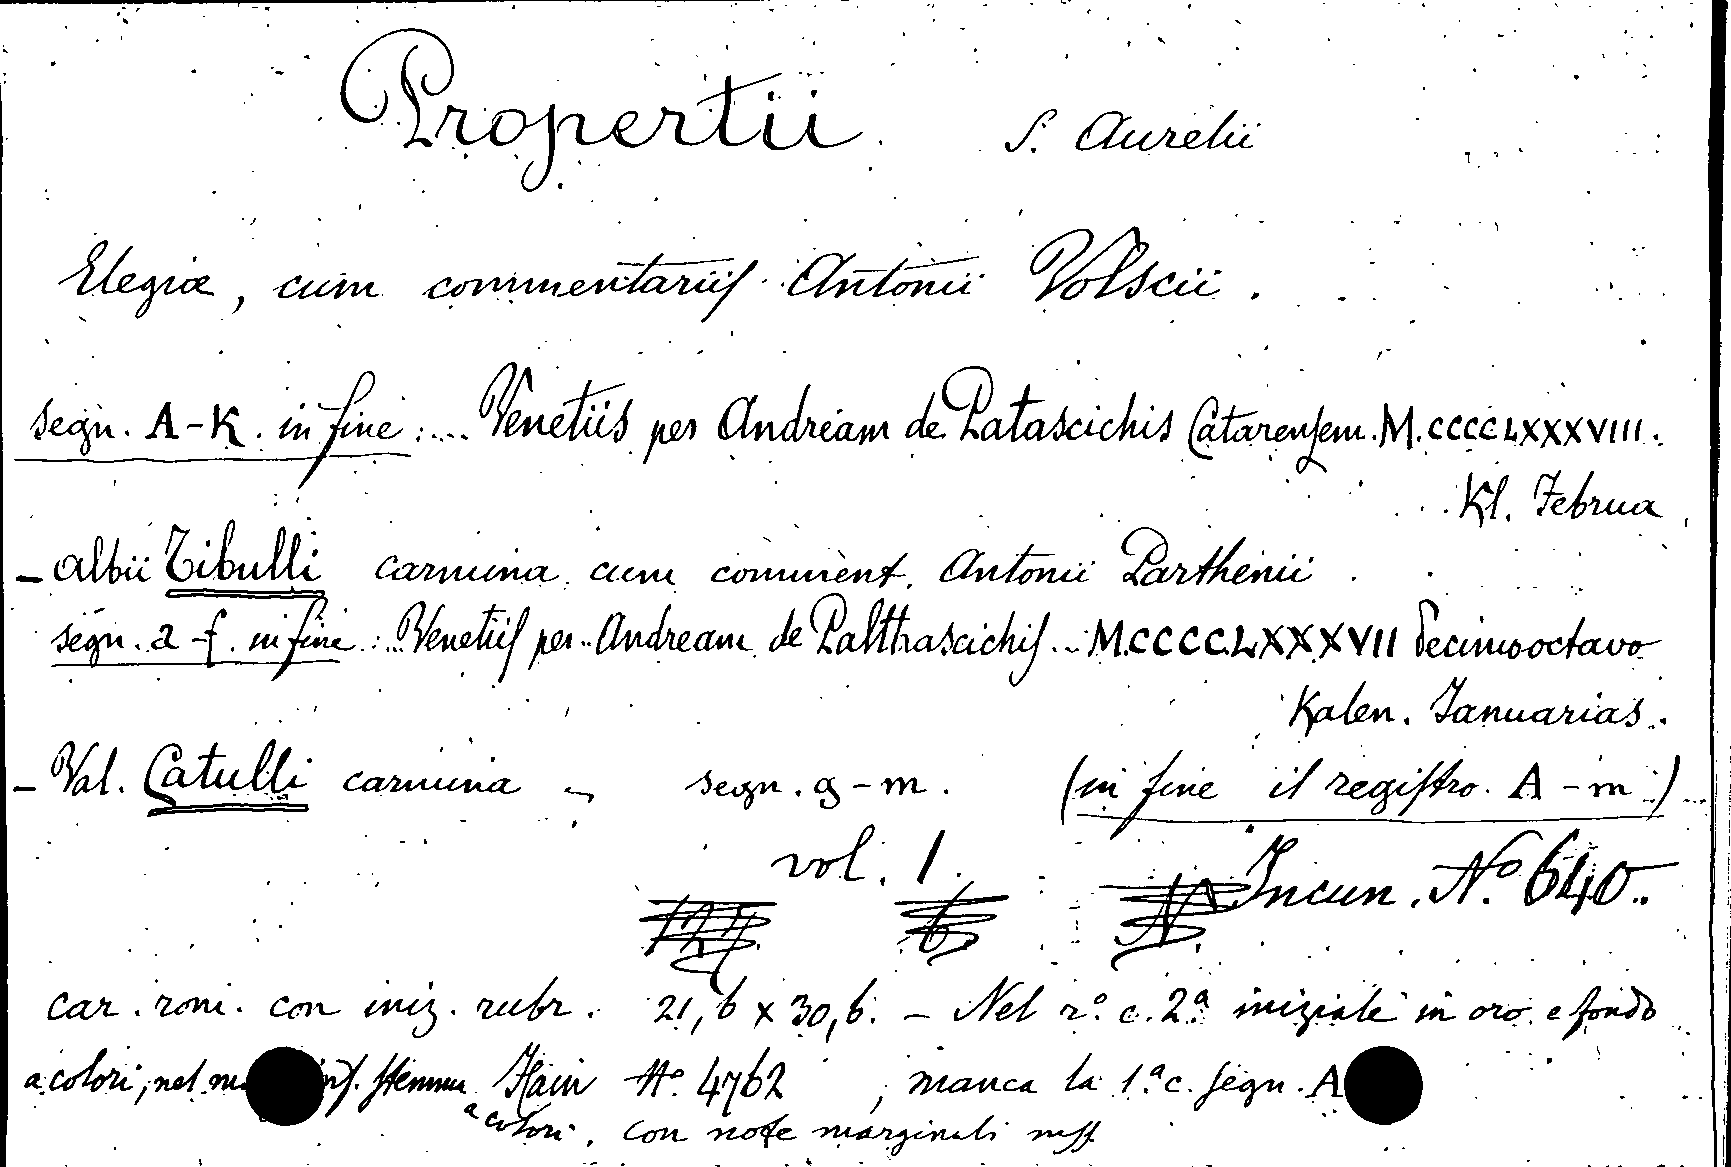 Propertii S. Aurelii
Elegiæ, cum commentariis Antonii Volscii.
segn. A-K. in fine: .... Venetiis per Andream de Patascichis Catarensem. M.CCCCLXXXVIII.
Kl. Februa
- Albii Tibulli carmina cum comment. Antonii Parthenii
segn. a-f. in fine: Venetiis per Andream de Palthascichis... M.CCCC.LXXXVII Decimooctavo
Kalen. Ianuarias.
- Val. Catulli carmina - segn. g-m. (in fine il registro. A-m.)
vol. 1. Incun. Nº 640.
car. rom. con iniz. rubr. 21,6 x 30,6. - Nel rº. c. 2ª iniziale in oro e fondo
a colori, nel inf. stemma Hain Nº. 4762, manca la 1ª c. segn. A
a colori. con note marginali mss